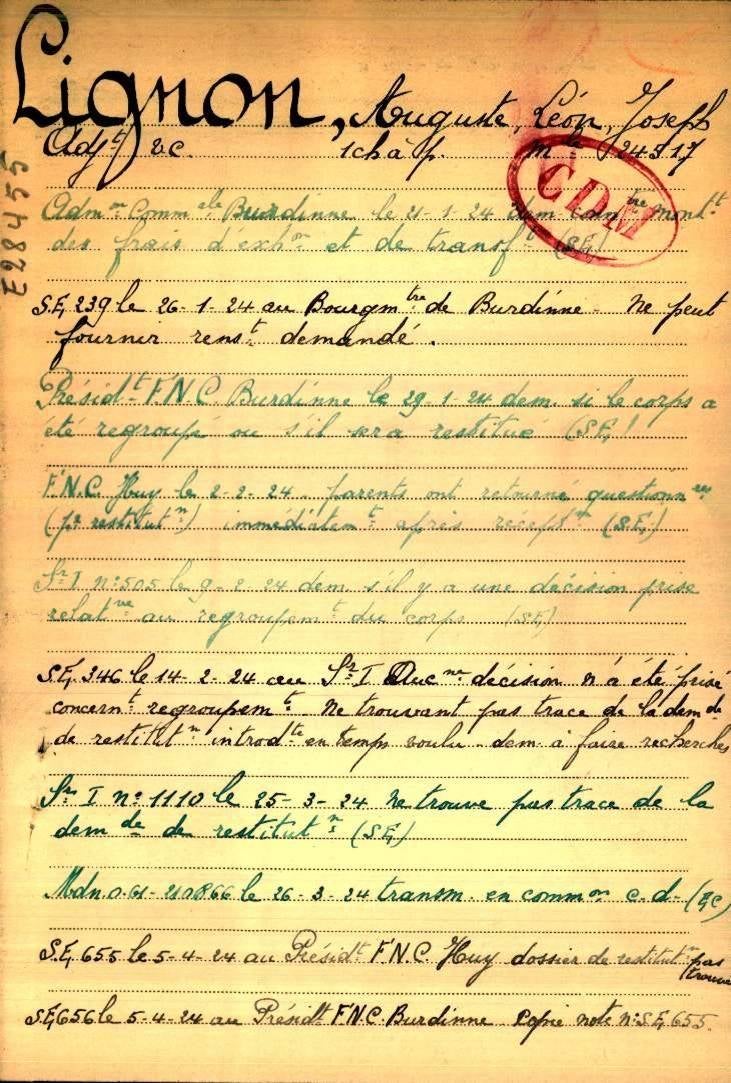 Lignon, Auguste, Léon, Joseph
Adjt 2C. 1 ch à p. mle 24517
E28455
CDM
Admon Commale Burdinne le 21-1-24 dem. montt
des frais d'exhon et de transft (SE)
S.E. 239 le 26-1-24 au Bourgmtre de Burdinne - Ne peut
fournir renst demandé.
Présidt F.N.C Burdinne le 29-1-24 dem. si le corps a
été regroupé ou s'il sera restitué (S.E.)
F.N.C. Huy le 2-2-24. parents ont retourné questionnres
(pr restitutn) immédiatemt après réceptn (S.E.)
Sre I n° 505 le 9-2-24 dem. s'il y a une décision prise
relatve au regroupemt du corps (SE)
S.E. 346 le 14-2-24 au Sre I Aucne décision n'a été prise
concernt regroupemt. Ne trouvant pas trace de la demde
de restitutn introdte en temps voulu. dem. à faire recherches
Sre I n° 1110 le 25-3-24 Ne trouve pas trace de la
demde de restitutn (S.E.)
Mdn 0.61-210866 le 26-3-24 transm. en common c.d. (EC)
S.E. 655 le 5-4-24 au Présidt F.N.C. Huy dossier de restitutn pas
trouvé
S.E. 656 le 5-4-24 au Présidt F.N.C. Burdinne. Copie note n° S.E. 655.